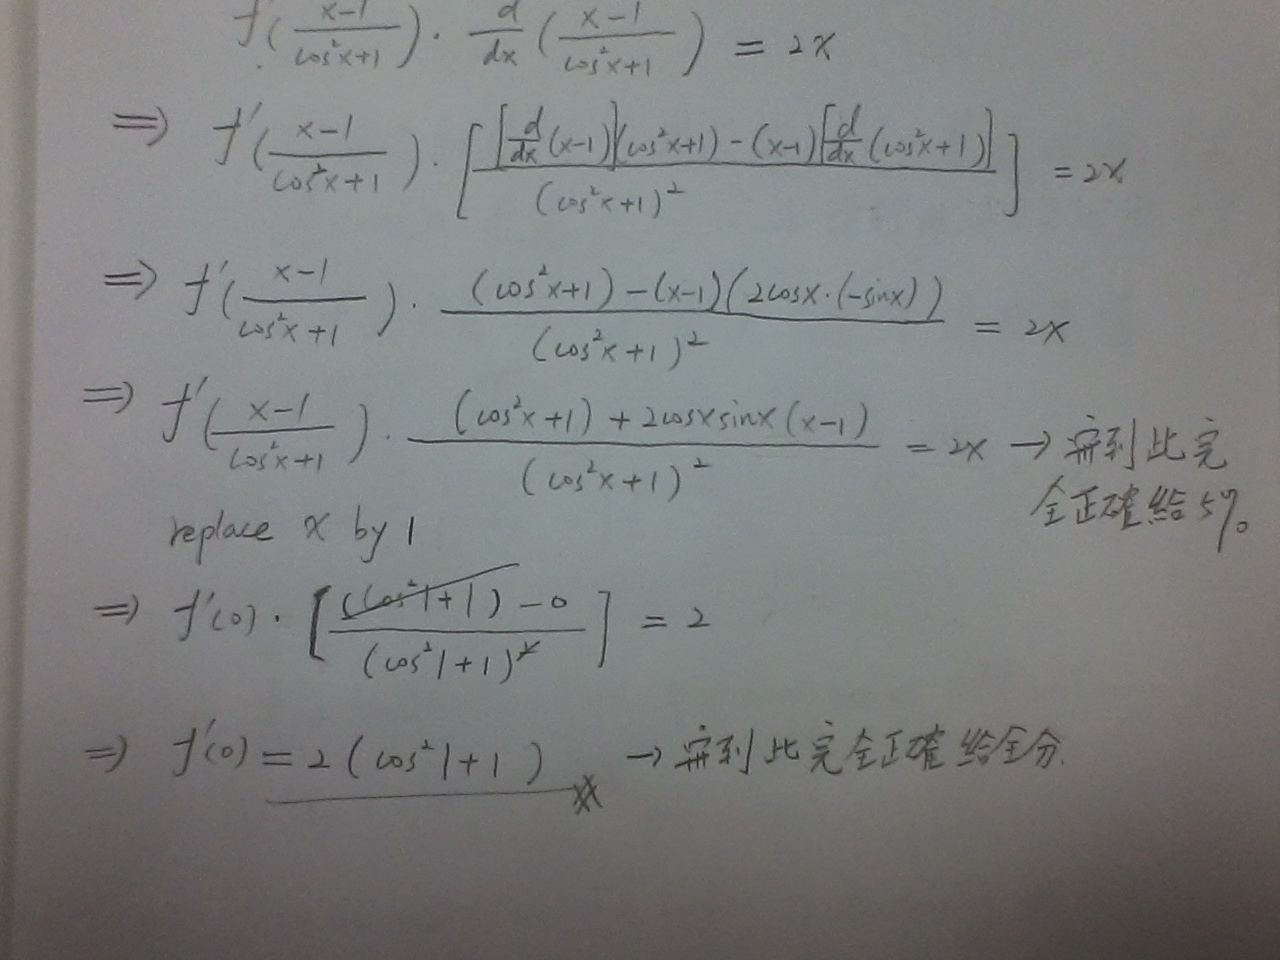 f'(\frac{x-1}{cos²x+1}) · \frac{d}{dx}(\frac{x-1}{cos²x+1}) = 2x
⇒ f'(\frac{x-1}{cos²x+1}) · [\frac{[\frac{d}{dx}(x-1)](cos²x+1) - (x-1)[\frac{d}{dx}(cos²x+1)]}{(cos²x+1)²}] = 2x
⇒ f'(\frac{x-1}{cos²x+1}) · \frac{(cos²x+1) - (x-1)(2cosx·(-sinx))}{(cos²x+1)²} = 2x
⇒ f'(\frac{x-1}{cos²x+1}) · \frac{(cos²x+1) + 2cosxsinx(x-1)}{(cos²x+1)²} = 2x → 算到此完
全正確給5%
replace x by 1
⇒ f'(0) · [\frac{(cos²1+1) - 0}{(cos²1+1)²}] = 2
⇒ f'(0) = 2(cos²1+1) → 算到此完全正確給全分.